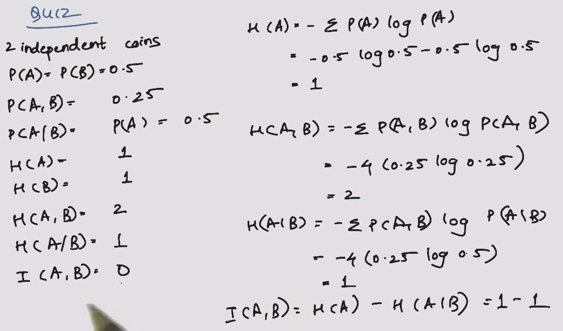 QUIZ
2 independent coins
P(A)= P(B)= 0.5
P(A,B)= 0.25
P(A/B)= P(A) = 0.5
H(A)= 1
H(B)= 1
H(A,B)= 2
H(A/B)= 1
I(A,B)= 0
H(A) = - Σ P(A) log P(A)
= -0.5 log 0.5 - 0.5 log 0.5
= 1
H(A,B) = -Σ P(A,B) log P(A,B)
= -4 (0.25 log 0.25)
= 2
H(A|B) = -Σ P(A,B) log P(A|B)
= -4 (0.25 log 0.5)
= 1
I(A,B) = H(A) - H(A|B) = 1 - 1